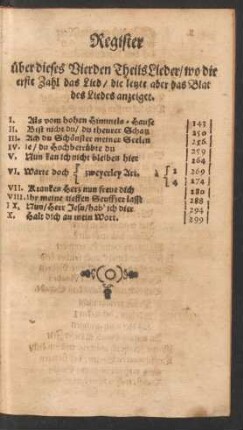 Register
über dieses Vierden Theils Lieder/ wo die
erste Zahl das Lied/ die letzt aber das Blat
des Liedes anzeiget.
I. Als vom hohen Himmels-Hause 143
II. Bist nicht du/ du theurer Schatz 150
III. Ach du Schönster meiner Seelen 156
IV. Je/ du Hochberühte du 159
V. Nun kan ich nicht bleiben hier 164
VI. Warte doch zweyerley Art. à 1 169
4 174
VII. Kranken Herz nun freue dich 180
VIII. Ihr meine tieffen Seuffzer lasst 188
IX. Nun/ Herr Jesu/ hab' ich dir 194
X. Halt dich an mein Wort. 199